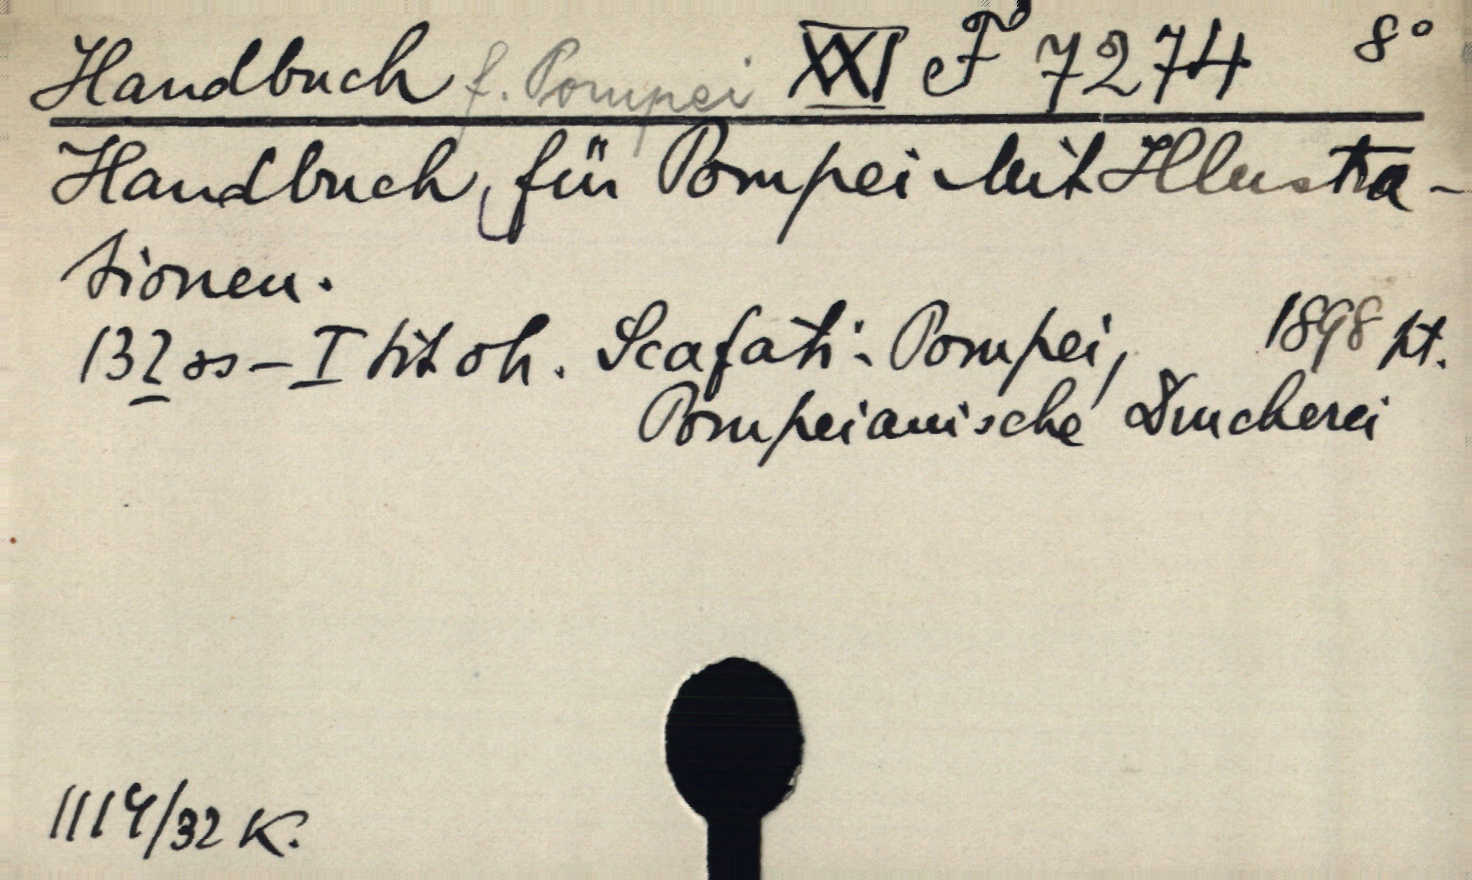 Handbuch f. Pompei XXI F 7274 8°
Handbuch für Pompei Mit Illustra-
tionen.
132 ss – I tit oh. Scafati: Pompei, 1898 pt.
Pompeianische Druckerei
1114/32 K.